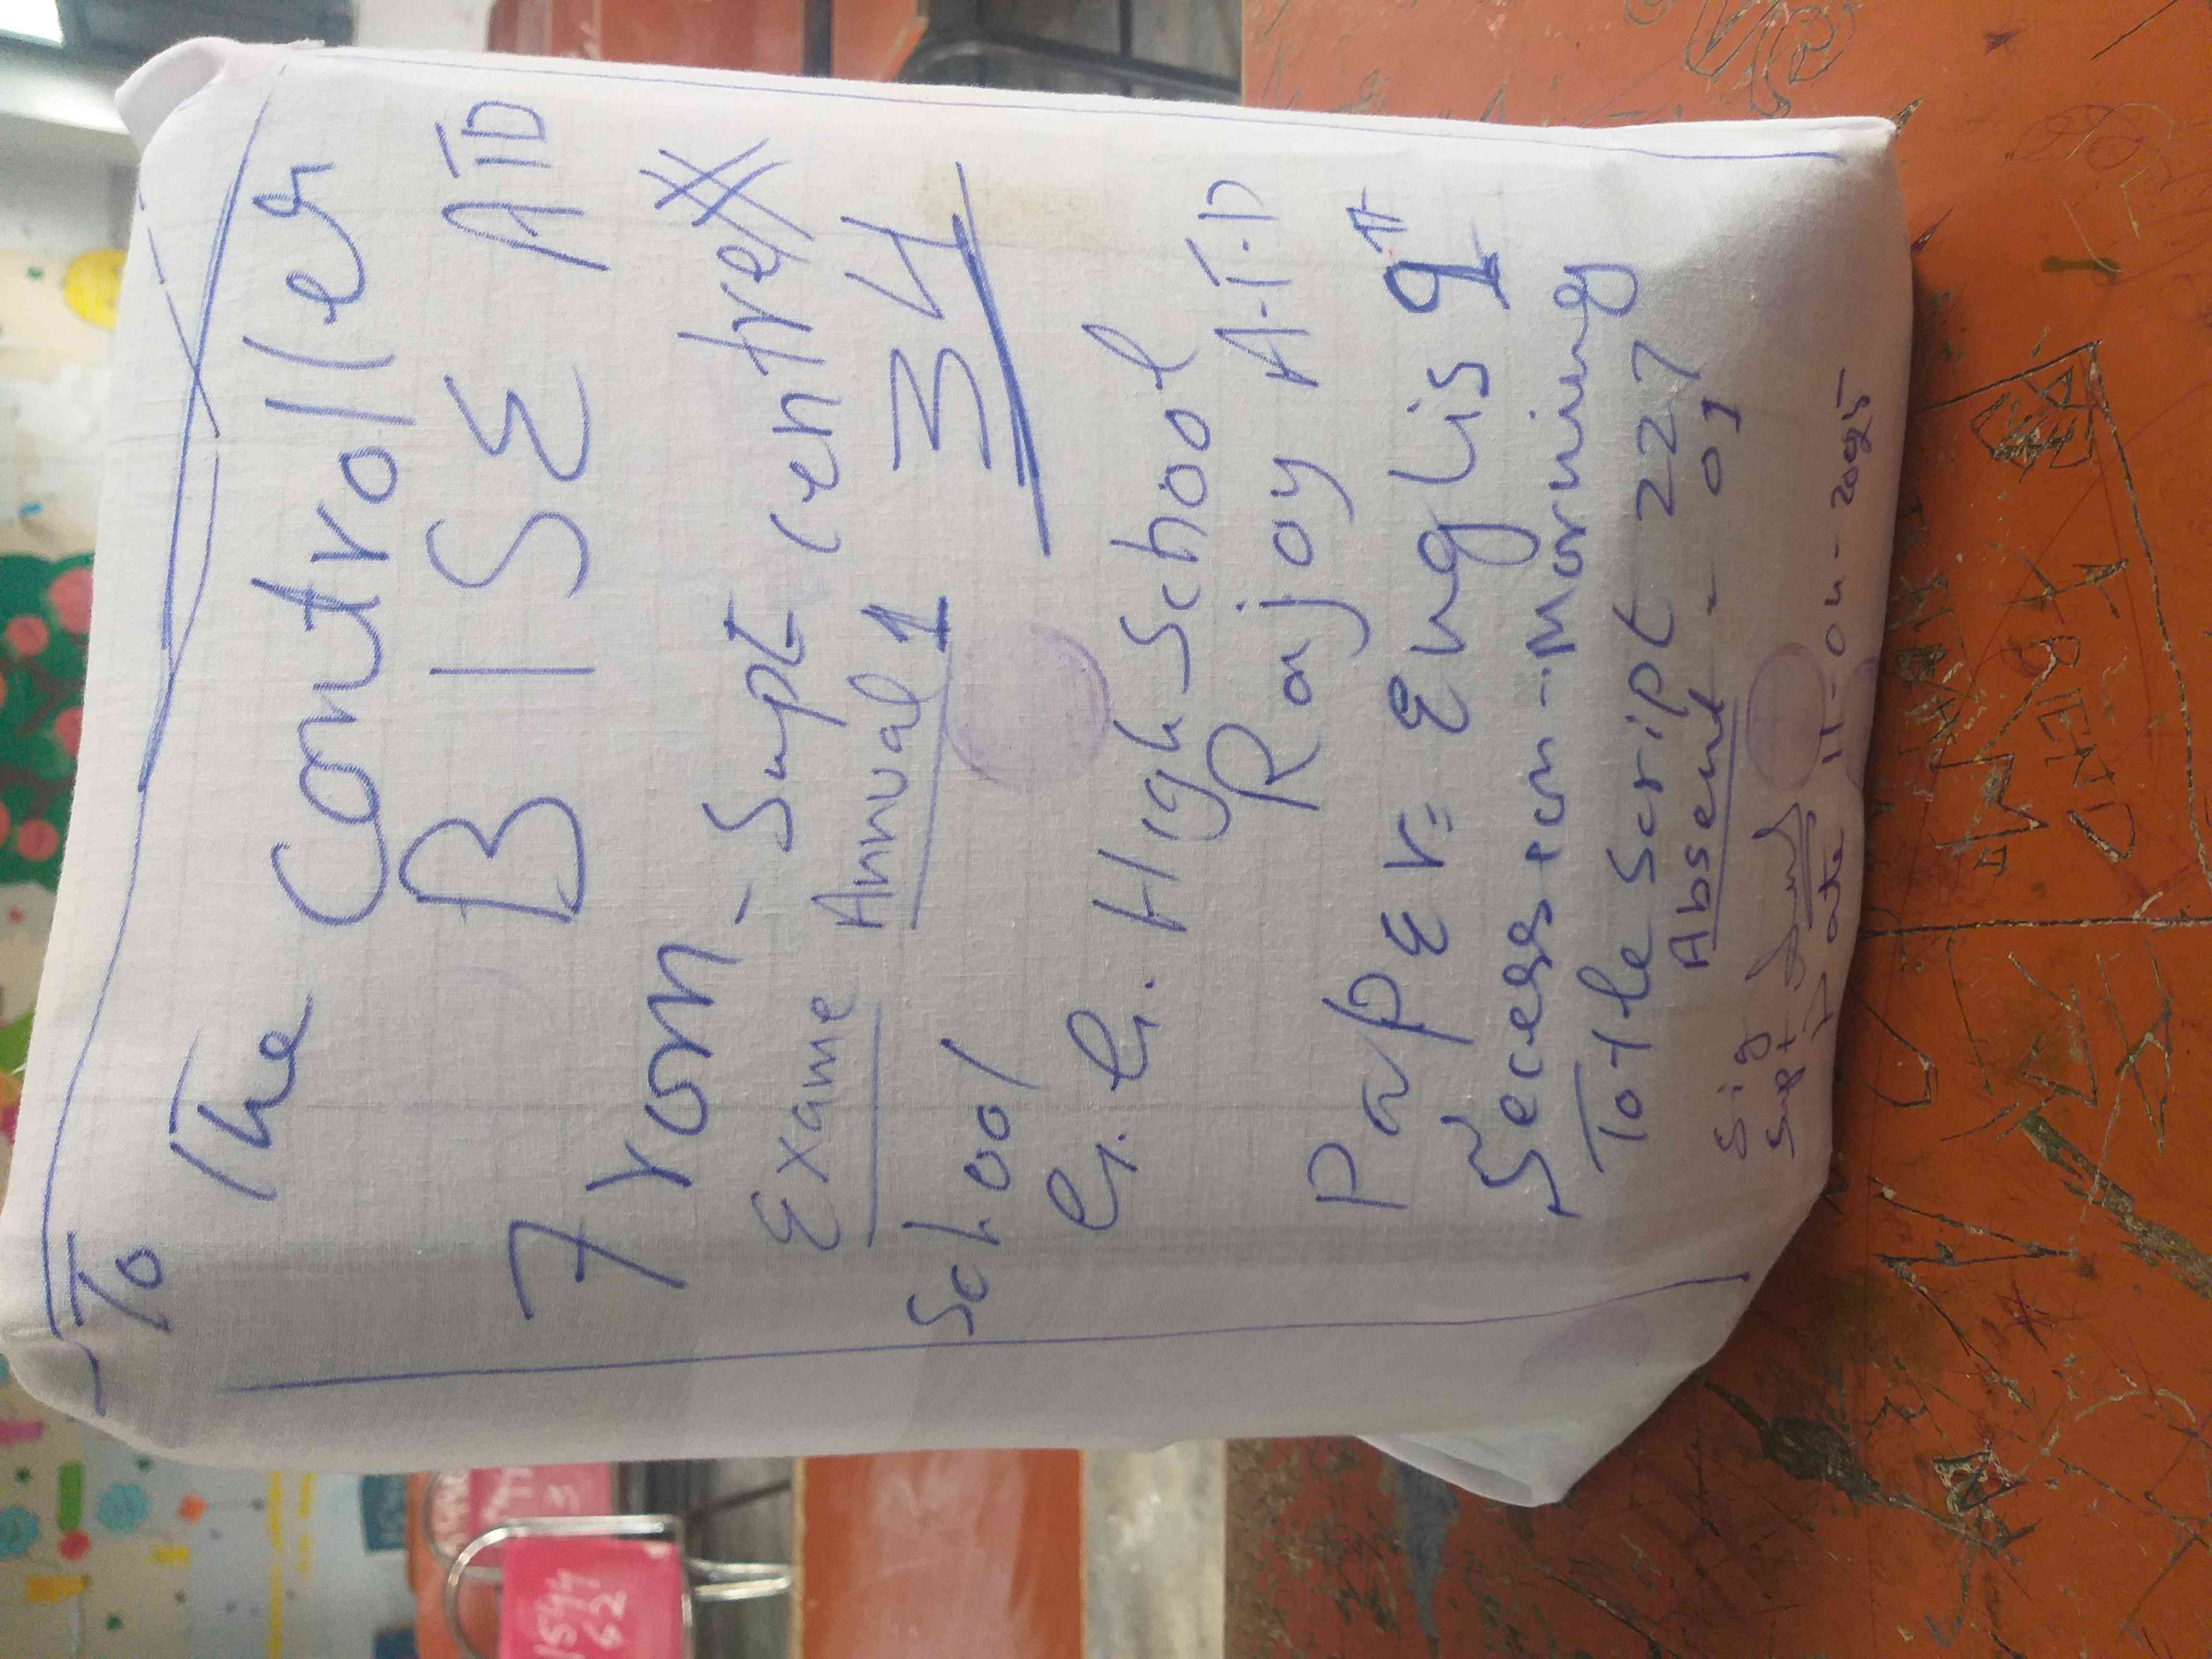 To
The Controller
BISE ATD
From - Supt centre
Exame Annual 1 34
School
G. G. High School
Rajoy A.T.D
PapEr = English 9th
Secession - Morning
Totle Script 227
Absent - 01
Sig
Supt
Date 11-04-2025
1544
62
FRIEND